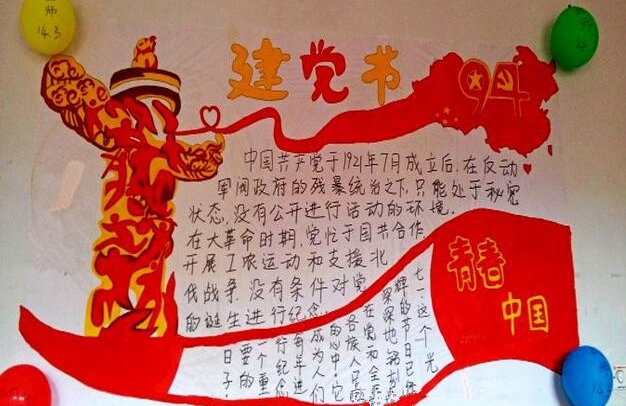 建党节
94
中国共产党于1921年7月成立后,在反动
军阀政府的残暴统治之下,只能处于秘密
状态,没有公开进行活动的环境.
在大革命时期,党忙于国共合作
开展工农运动和支援北
伐战争,没有条件对党
的诞生进行纪念.
七一,这个光
辉的节日已经
深深地铭刻
在党和全国
各族人民
的心中,它
成为人们
每年进
行纪念
的重
一个
要的
日子.
青春
中国
师
14.3